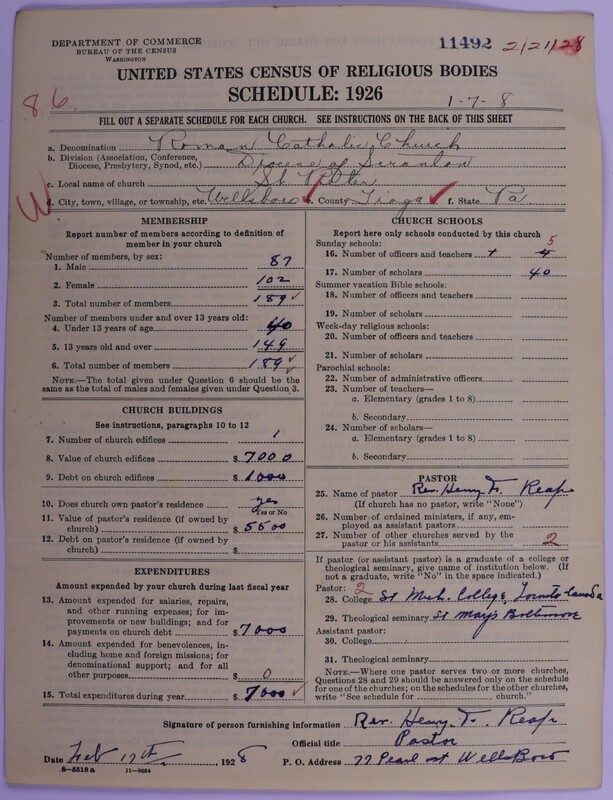 DEPARTMENT OF COMMERCE
BUREAU OF THE CENSUS
WASHINGTON
11492 2/21/28
UNITED STATES CENSUS OF RELIGIOUS BODIES
SCHEDULE: 1926
86
1-7-8
FILL OUT A SEPARATE SCHEDULE FOR EACH CHURCH. SEE INSTRUCTIONS ON THE BACK OF THIS SHEET
a. Denomination Roman Catholic Church
b. Division (Association, Conference, Diocese, Presbytery, Synod, etc.) Diocese of Scranton
c. Local name of church St Peters
W
d. City, town, village, or township, etc. Wellsboro e. County Tioga f. State Pa
MEMBERSHIP
Report number of members according to definition of member in your church
Number of members, by sex:
1. Male 87
2. Female 102
3. Total number of members 189
Number of members under and over 13 years old:
4. Under 13 years of age 40
5. 13 years old and over 149
6. Total number of members 189
NOTE.—The total given under Question 6 should be the same as the total of males and females given under Question 3.
CHURCH BUILDINGS
See instructions, paragraphs 10 to 12
7. Number of church edifices 1
8. Value of church edifices $ 7000
9. Debt on church edifices $ 1000
10. Does church own pastor's residence yes
Yes or No
11. Value of pastor's residence (if owned by church) $ 5500
12. Debt on pastor's residence (if owned by church) $
EXPENDITURES
Amount expended by your church during last fiscal year
13. Amount expended for salaries, repairs, and other running expenses; for improvements or new buildings; and for payments on church debt $ 7000
14. Amount expended for benevolences, including home and foreign missions; for denominational support; and for all other purposes $ 0
15. Total expenditures during year $ 7000
CHURCH SCHOOLS
Report here only schools conducted by this church
Sunday schools: 5
16. Number of officers and teachers 4
17. Number of scholars 40
Summer vacation Bible schools:
18. Number of officers and teachers
19. Number of scholars
Week-day religious schools:
20. Number of officers and teachers
21. Number of scholars
Parochial schools:
22. Number of administrative officers
23. Number of teachers—
a. Elementary (grades 1 to 8)
b. Secondary
24. Number of scholars—
a. Elementary (grades 1 to 8)
b. Secondary
PASTOR
25. Name of pastor Rev. Henry F. Reap
(If church has no pastor, write "None")
26. Number of ordained ministers, if any, employed as assistant pastors
27. Number of other churches served by the pastor or his assistants 2
If pastor (or assistant pastor) is a graduate of a college or theological seminary, give name of institution below. (If not a graduate, write "No" in the space indicated.)
Pastor: 2
28. College St Mich. College Toronto Canada
29. Theological seminary St Marys Baltimore
Assistant pastor:
30. College
31. Theological seminary
NOTE.—Where one pastor serves two or more churches, Questions 28 and 29 should be answered only on the schedule for one of the churches; on the schedules for the other churches, write "See schedule for church."
Signature of person furnishing information Rev. Henry F. Reap
Official title Pastor
Date Feb 17th, 1928 P. O. Address 77 Pearl st Wellsboro
8-5518a 11-9054